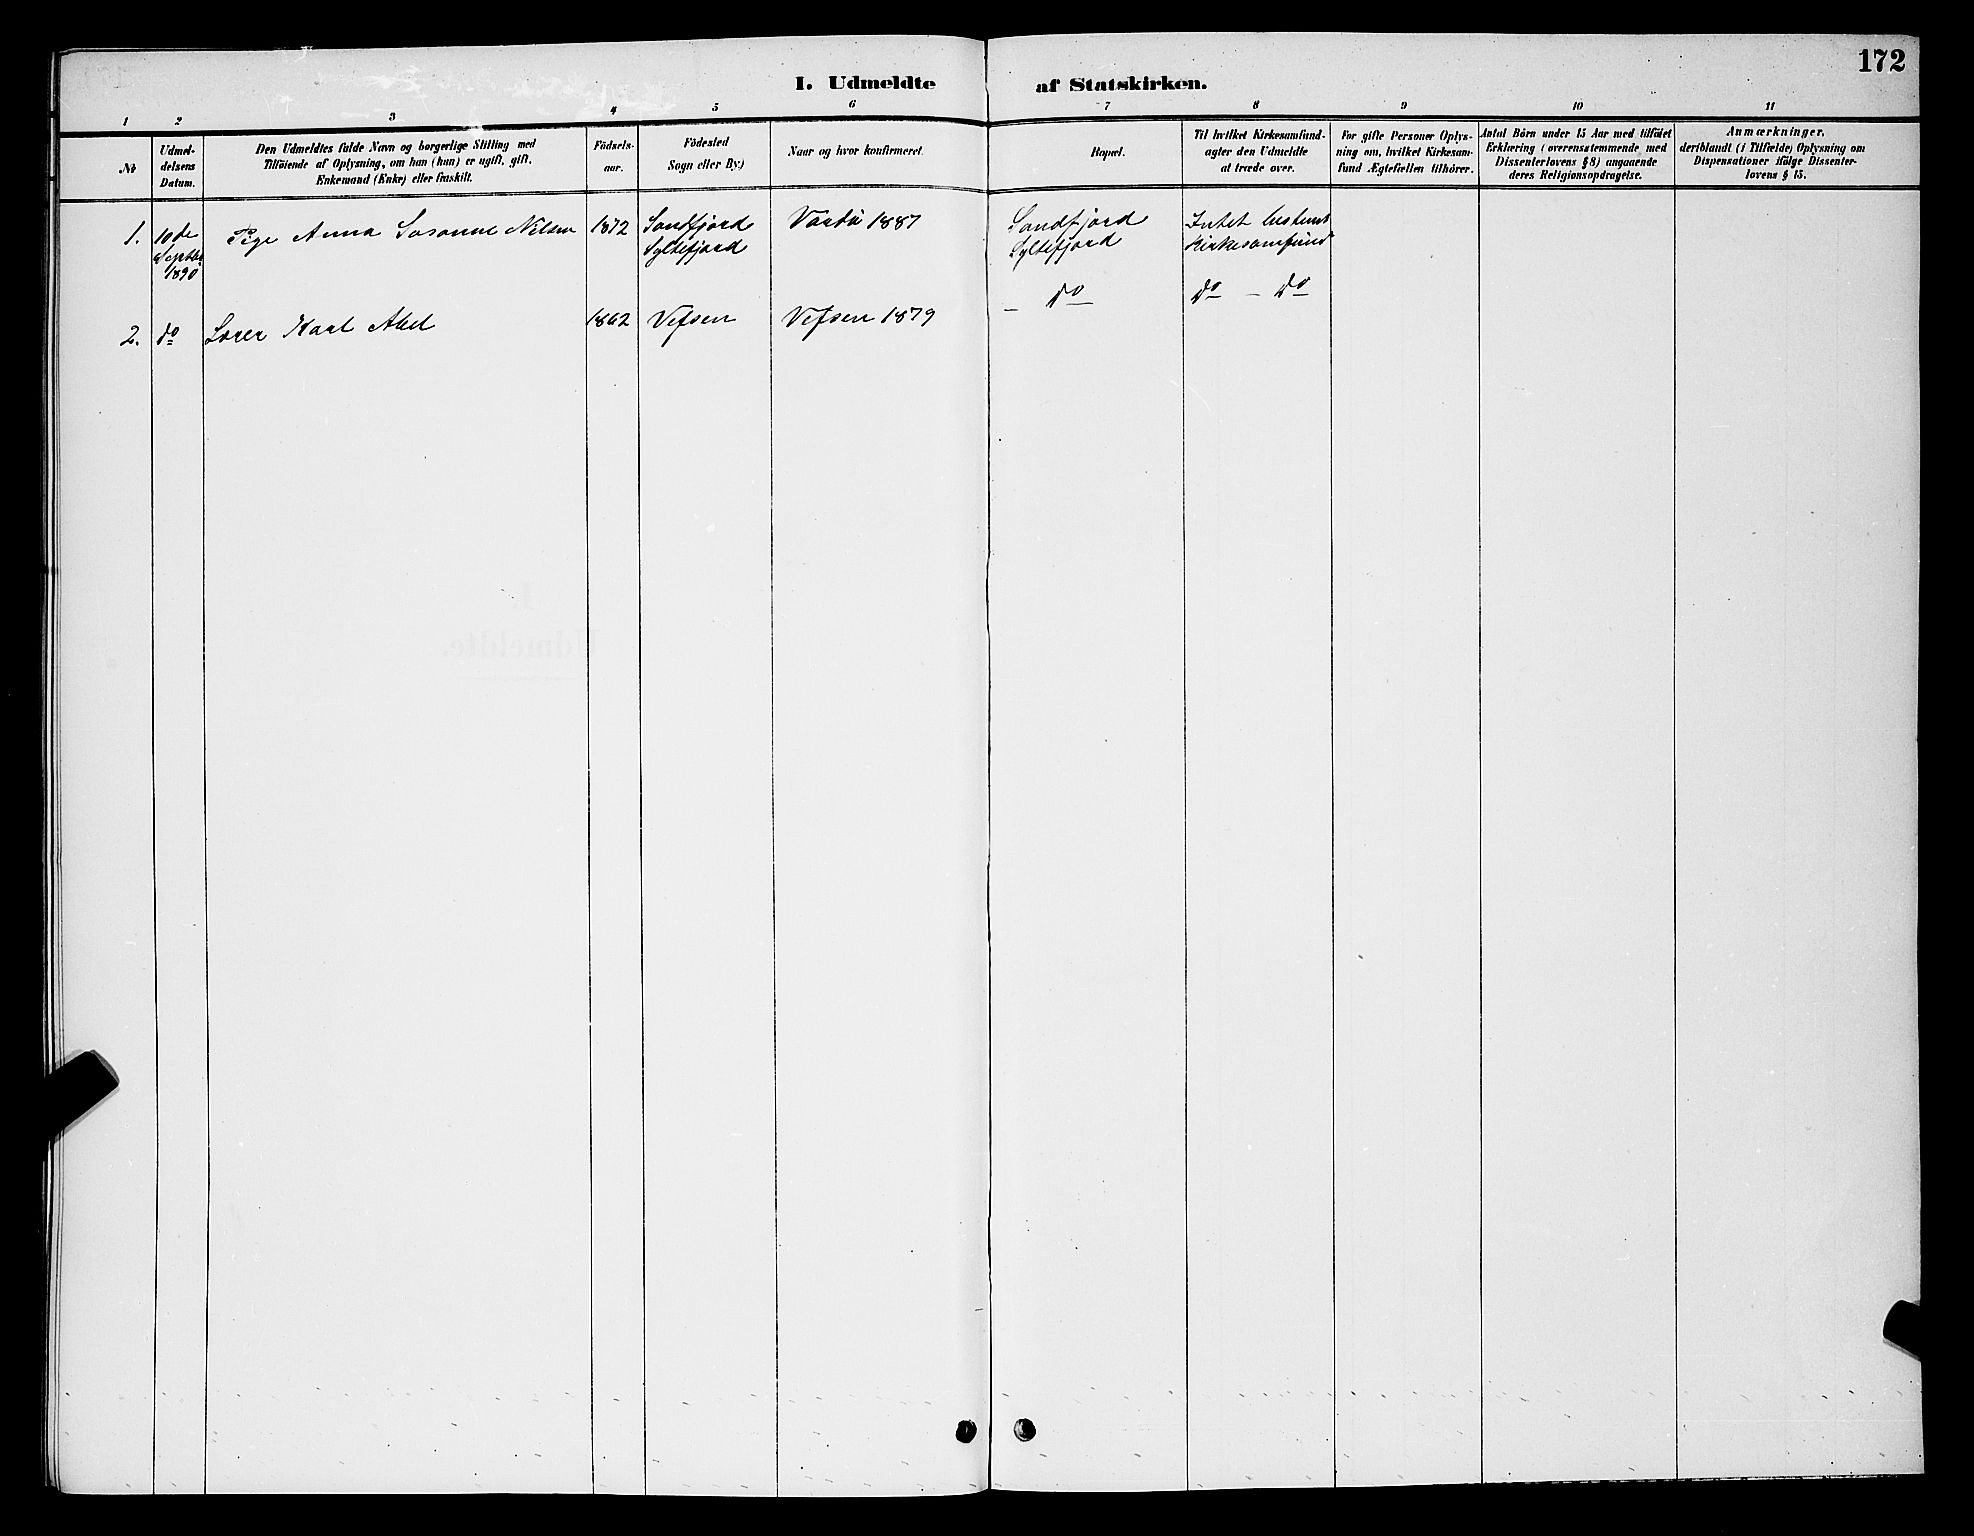 172
I. Udmeldte af Statskirken.
1 2 3 4 5 6 7 8 9 10 11
No
Udmel-
delsens
Datum.
Den Udmeldtes fulde Navn og borgerlige Stilling med
Tilföiende af Oplysning, om han (hun) er ugift, gift,
Enkemand (Enke) eller fraskilt.
Födsels-
aar.
Födested
Sogn eller By.)
Naar og hvor konfirmeret.
Bopæl.
Til hvilket Kirkesamfund-
agter den Udmeldte
at træde over.
For gifte Personer Oplys-
ning om, hvilket Kirkesam-
fund Ægtefællen tilhörer.
Antal Börn under 15 Aar med tilföiet
Erklæring (overensstemmende med
Dissenterlovens § 8) angaaende
deres Religionsopdragelse.
Anmærkninger,
deriblandt (i Tilfælde) Oplysning om
Dispensationer ifölge Dissenter-
lovens § 15.
1.
10de
Septbr
1890
Pige Anna Sosanne Nilsen
1872
Sandfjord
Syltefjord
Vardö 1887
Sandfjord
Syltefjord
Intet bestemt
Kirkesamfund
2.
do
Lærer Karl Abel
1862
Vefsen
Vefsen 1879
— do
do — do